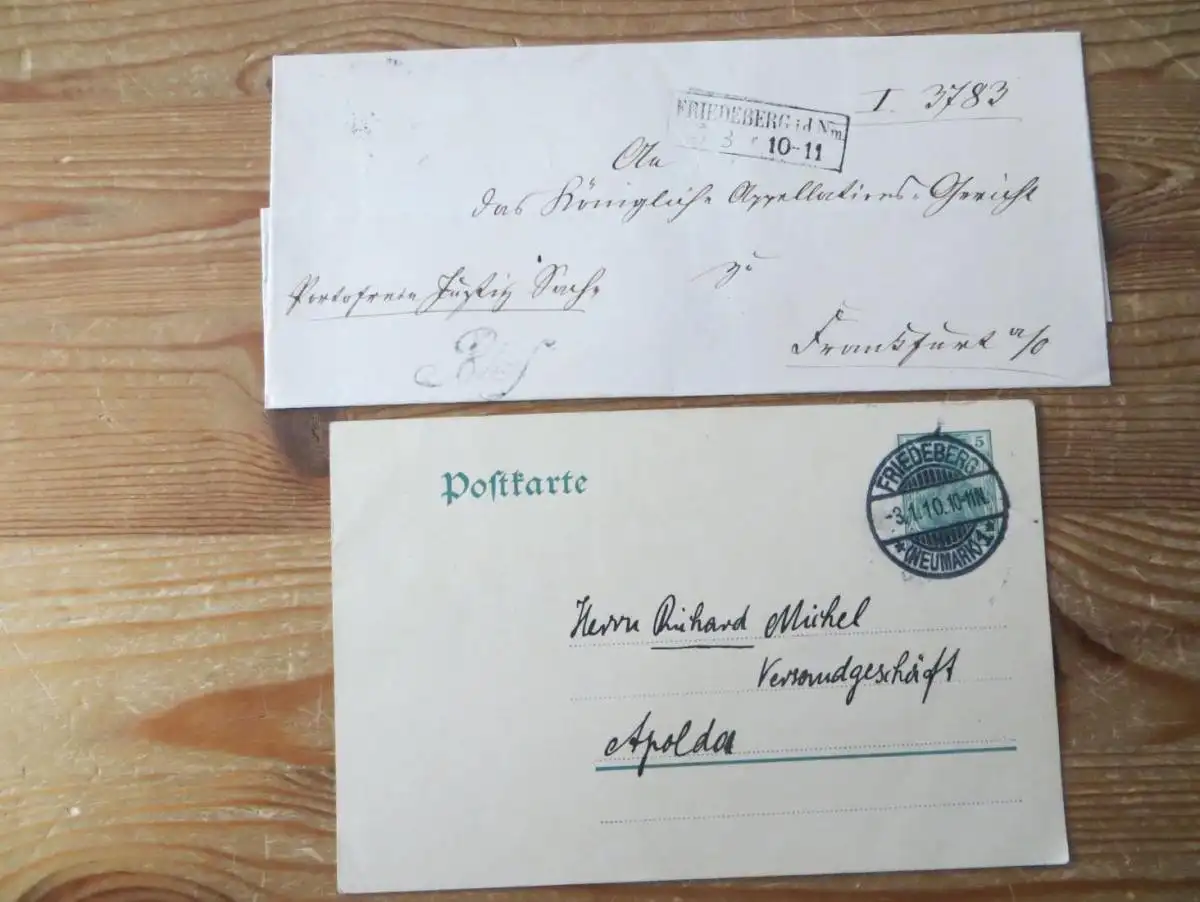 I. 3783
FRIEDEBERG i.d Nm.
3 10-11
An
das Königliche Appellations-Gericht
zu
Portofreie Justiz Sache
Frankfurt a/O
Postkarte
5
FRIEDEBERG
-3.1.10.10-11N.
*(NEUMARK)1*
Herrn Richard Michel
Versandgeschäft
Apolda